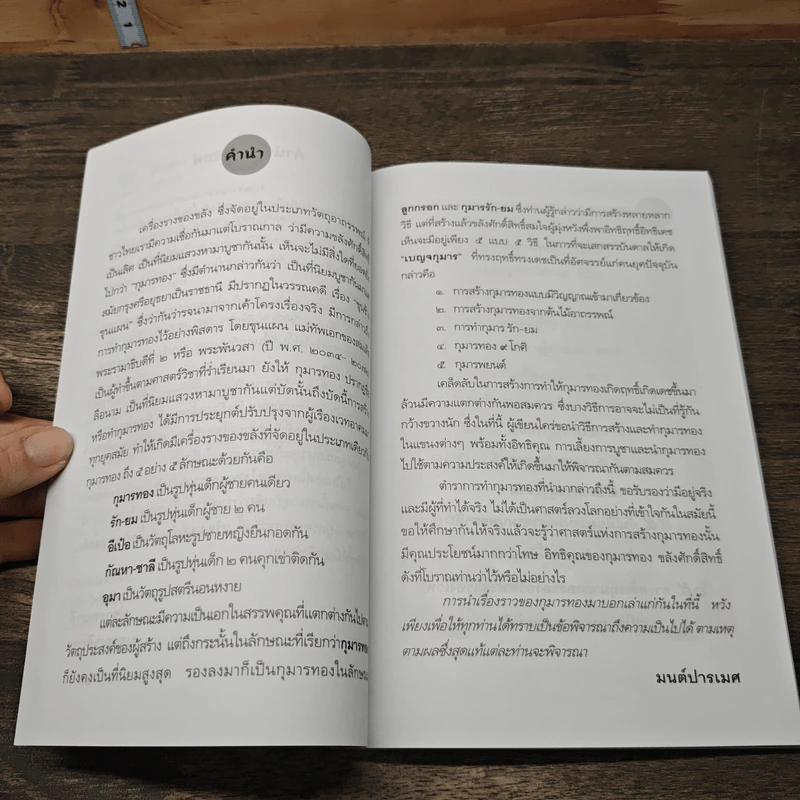 2
1
คำนำ
เครื่องรางของขลัง ซึ่งจัดอยู่ในประเภทวัตถุอาถรรพณ์
ชาวไทยเรามีความเชื่อกันมาแต่โบราณกาล ว่ามีความขลังศักดิ์สิทธิ์
เป็นเลิศ เป็นที่นิยมแสวงหามาบูชากันนั้น เห็นจะไม่มีสิ่งใดที่ยอดเยี่ยม
ไปกว่า “กุมารทอง” ซึ่งมีตำนานกล่าวกันว่า เป็นที่นิยมบูชากันมาแต่
สมัยกรุงศรีอยุธยาเป็นราชธานี มีปรากฏในวรรณคดี เรื่อง “ขุนช้าง
ขุนแผน” ซึ่งว่ากันว่ารจนามาจากเค้าโครงเรื่องจริง มีการกล่าวถึง
การทำกุมารทองไว้อย่างพิสดาร โดยขุนแผน แม่ทัพเอกของสมเด็จ
พระรามาธิบดีที่ ๒ หรือ พระพันวสา (ปี พ.ศ. ๒๐๓๔-
เป็นผู้ทำขึ้นตามศาสตร์วิชาที่ร่ำเรียนมา ยังให้ กุมารทอง ปรากฏชื่อ
ลือนาม เป็นที่นิยมแสวงหามาบูชากันแต่บัดนั้นถึงบัดนี้การสร้าง
หรือทำกุมารทอง ได้มีการประยุกต์ปรับปรุงจากผู้เรืองเวทอาคม
ทุกยุคสมัย ทำให้เกิดมีเครื่องรางของขลังที่จัดอยู่ในประเภทเดียวกับ
กุมารทอง ถึง ๕ อย่าง ๕ ลักษณะด้วยกันคือ
กุมารทอง เป็นรูปหุ่นเด็กผู้ชายคนเดียว
รัก-ยม เป็นรูปหุ่นเด็กผู้ชาย ๒ คน
อีเป๋อ เป็นวัตถุโลหะรูปชายหญิงยืนกอดกัน
กัณหา-ชาลี เป็นรูปหุ่นเด็ก ๒ คนคุกเข่าติดกัน
อุมา เป็นวัตถุรูปสตรีนอนหงาย
แต่ละลักษณะมีความเป็นเอกในสรรพคุณที่แตกต่างกันไปตาม
วัตถุประสงค์ของผู้สร้าง แต่ถึงกระนั้นในลักษณะที่เรียกว่ากุมารทอง
ก็ยังคงเป็นที่นิยมสูงสุด รองลงมาก็เป็นกุมารทองในลักษณะ
ลูกกรอก และ กุมารรัก-ยม ซึ่งท่านผู้รู้กล่าวว่ามีการสร้างหลายหลาก
วิธี แต่ที่สร้างแล้วขลังศักดิ์สิทธิ์สมใจผู้มุ่งหวังพึ่งพาอิทธิฤทธิ์อิทธิเดช
เห็นจะมีอยู่เพียง ๕ แบบ ๕ วิธี ในการที่จะเสกสรรบันดาลให้เกิด
“เบญจกุมาร” ที่ทรงฤทธิ์ทรงเดชเป็นที่อัศจรรย์แก่คนยุคปัจจุบัน
กล่าวคือ
๑. การสร้างกุมารทองแบบมีวิญญาณเข้ามาเกี่ยวข้อง
๒. การสร้างกุมารทองจากต้นไม้อาถรรพณ์
๓. การทำกุมาร รัก-ยม
๔. กุมารทอง ๙ โกศิ
๕ กุมารพยนต์
เคล็ดลับในการสร้างการทำให้กุมารทองเกิดฤทธิ์เกิดเดชขึ้นมา
ล้วนมีความแตกต่างกันพอสมควร ซึ่งบางวิธีการอาจจะไม่เป็นที่รู้กัน
กว้างขวางนัก ซึ่งในที่นี้ ผู้เขียนใคร่ขอนำวิธีการสร้างและทำกุมารทอง
ในแขนงต่างๆ พร้อมทั้งอิทธิคุณ การเลี้ยงการบูชาและนำกุมารทอง
ไปใช้ตามความประสงค์ให้เกิดขึ้นมาให้พิจารณากันตามสมควร
ตำราการทำกุมารทองที่นำมากล่าวถึงนี้ ขอรับรองว่ามีอยู่จริง
และมีผู้ที่ทำได้จริง ไม่ได้เป็นศาสตร์ลวงโลกอย่างที่เข้าใจกันในสมัยนี้
ขอให้ศึกษากันให้จริงแล้วจะรู้ว่าศาสตร์แห่งการสร้างกุมารทองนั้น
มีคุณประโยชน์มากกว่าโทษ อิทธิคุณของกุมารทอง ขลังศักดิ์สิทธิ์
ดังที่โบราณท่านว่าไว้หรือไม่อย่างไร
การนำเรื่องราวของกุมารทองมาบอกเล่าแก่กันในที่นี้ หวัง
เพียงเพื่อให้ทุกท่านได้ทราบเป็นข้อพิจารณาถึงความเป็นไปได้ ตามเหตุ
ตามผลซึ่งสุดแท้แต่ละท่านจะพิจารณา
มนต์ปารเมศ